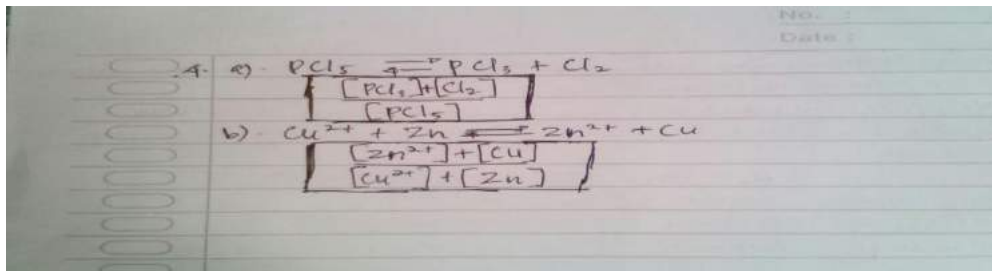 No. :
Date :
4. a). PCl₅ ⇌ PCl₃ + Cl₂
[PCl₃]+[Cl₂]
[PCl₅]
b). Cu²⁺ + Zn ⇌ Zn²⁺ + Cu
[Zn²⁺]+[Cu]
[Cu²⁺]+[Zn]